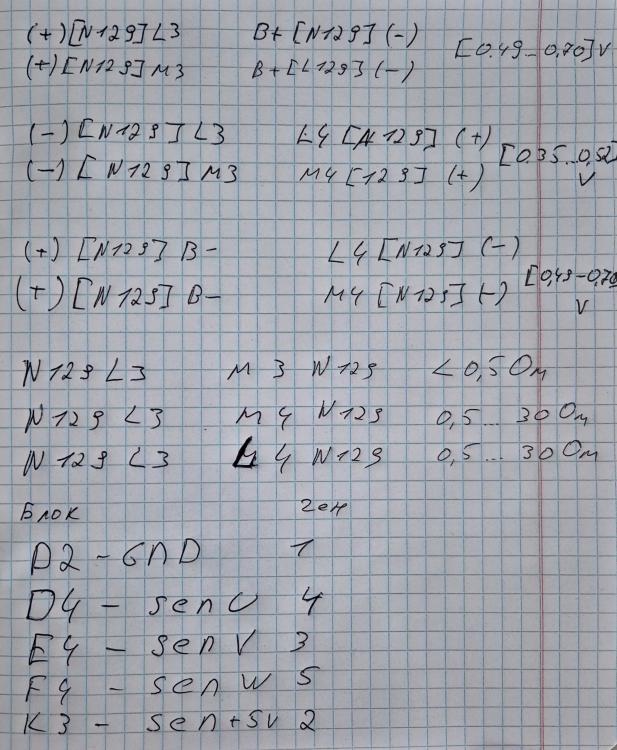 (+)[N129]L3 B+[N129](-)
(+)[N129]M3 B+[L129](-) [0.49-0,70]V
(-)[N129]L3 L4[N129](+)
(-)[N129]M3 M4[129](+) [0.35...0,52] V
(+)[N129]B- L4[N129](-)
(+)[N129]B- M4[N129](-) [0,49-0,70 V
N129 L3 M3 N129 <0,5Ом
N129 L3 M4 N129 0,5...30Ом
N129 L3 L4 N129 0,5...30Ом
Блок ген
D2-GND 1
D4-sen U 4
E4-sen V 3
F4-sen W 5
K3-sen+5v 2